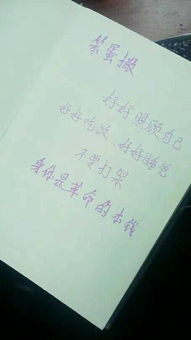 笨蛋撒
好好照顾自己
好好吃饭 好好睡觉
不要打架
身体是革命的本钱